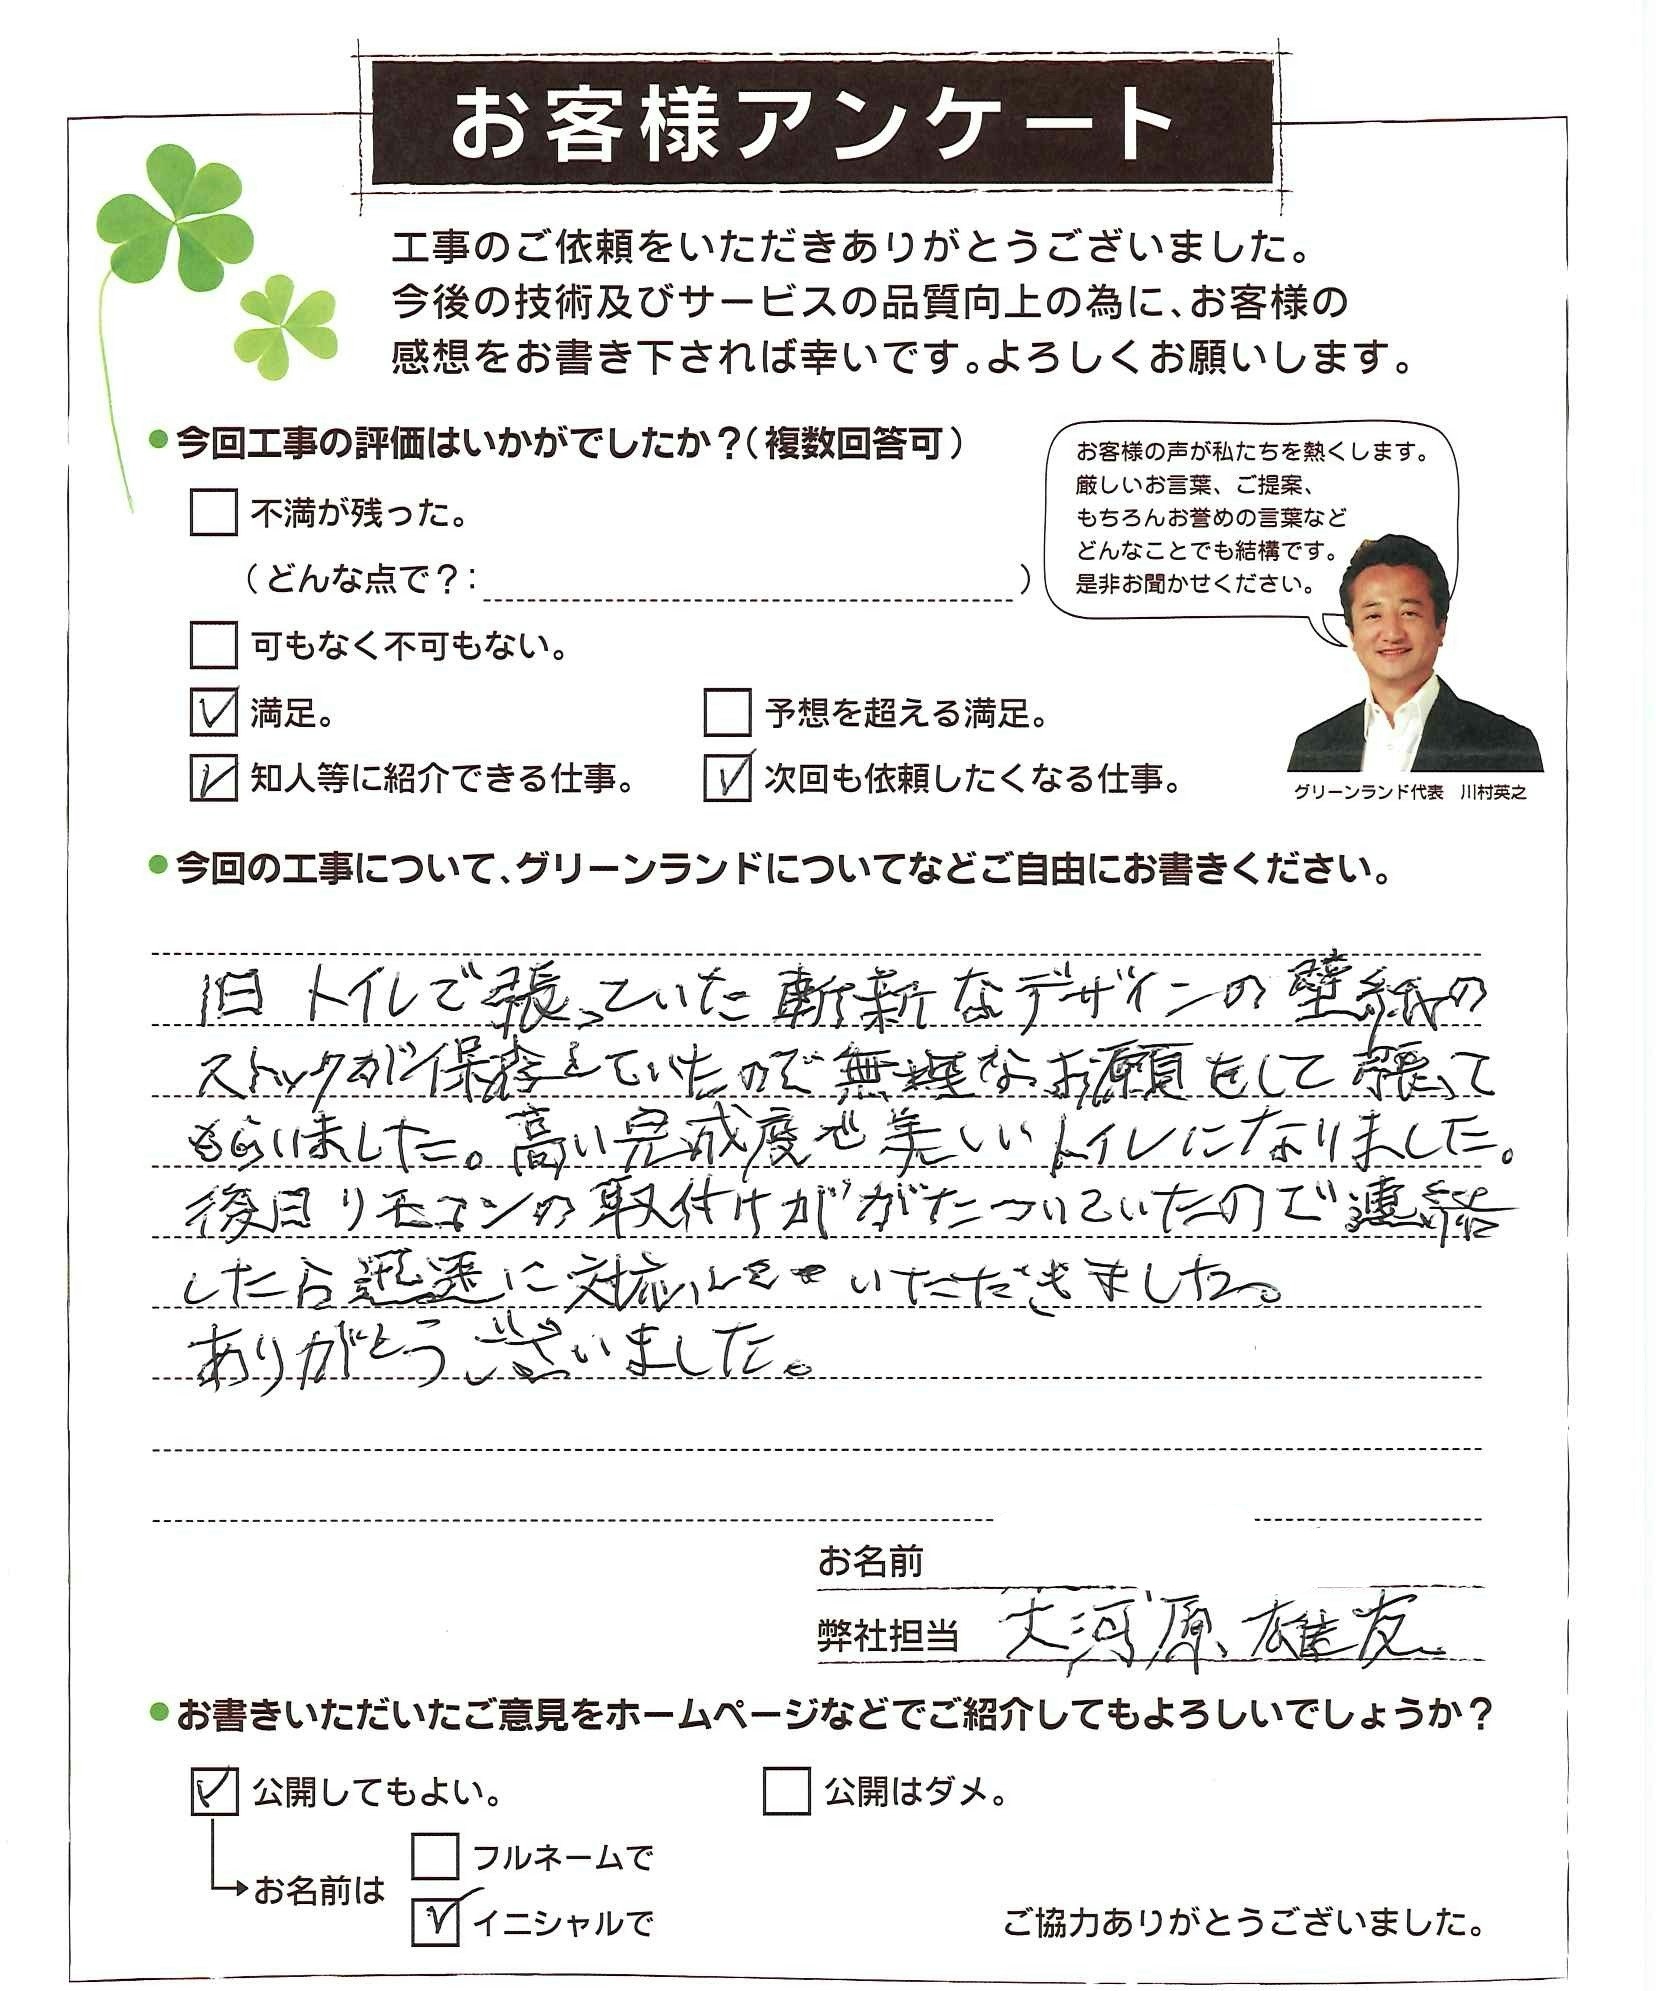 お客様アンケート
工事のご依頼をいただきありがとうございました。
今後の技術及びサービスの品質向上の為に、お客様の
感想をお書き下されば幸いです。よろしくお願いします。
●今回工事の評価はいかがでしたか？（複数回答可）
お客様の声が私たちを熱くします。
厳しいお言葉、ご提案、
もちろんお誉めの言葉など
どんなことでも結構です。
是非お聞かせください。
不満が残った。
（どんな点で？：　）
可もなく不可もない。
満足。
予想を超える満足。
知人等に紹介できる仕事。
次回も依頼したくなる仕事。
グリーンランド代表　川村英之
●今回の工事について、グリーンランドについてなどご自由にお書きください。
旧トイレで張っていた斬新なデザインの壁紙の
ストックが保存していたので無理なお願をして張って
もらいました。高い完成度で美しいトイレになりました。
後日リモコンの取付けががたついていたので連絡
したら迅速に対応していただきました。
ありがとうございました。
お名前
弊社担当　大河原雄友
●お書きいただいたご意見をホームページなどでご紹介してもよろしいでしょうか？
公開してもよい。
公開はダメ。
お名前は
フルネームで
イニシャルで
ご協力ありがとうございました。